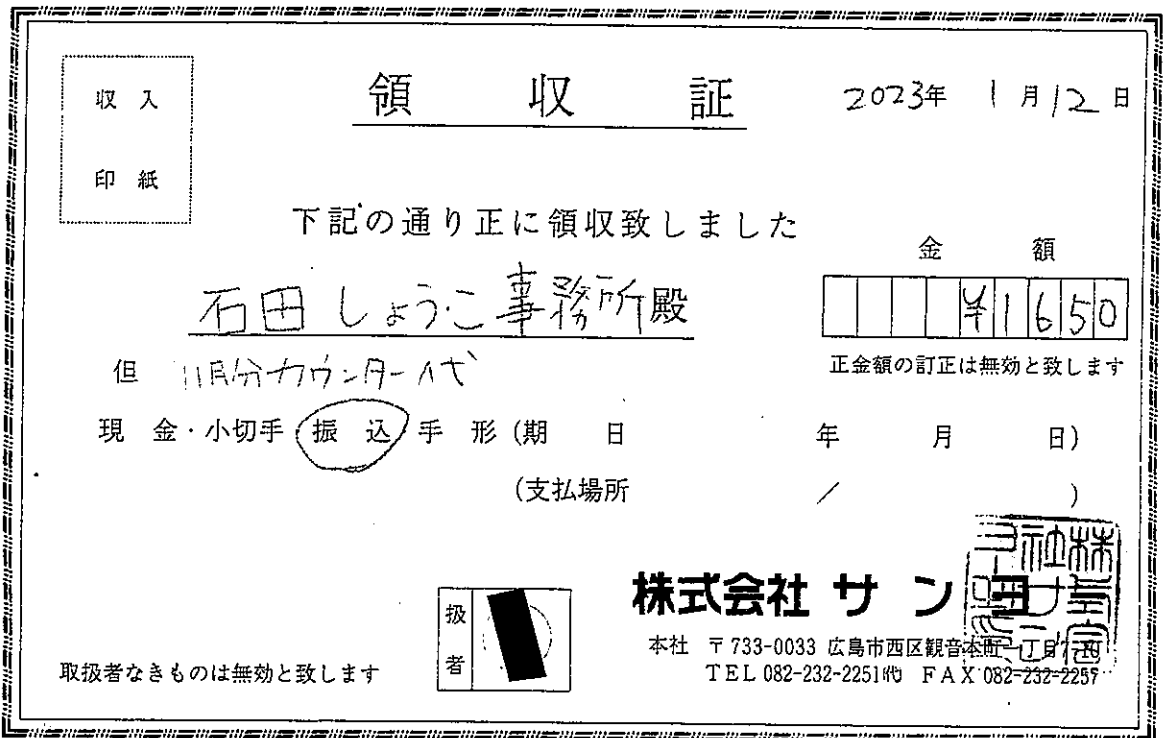 収入
印紙
領収証
2023年 1月12日
下記の通り正に領収致しました
金額
石田しょうこ事務所殿
¥1650
正金額の訂正は無効と致します
但 11月分カウンター代
現金・小切手・振込・手形(期日 年 月 日)
(支払場所 / )
株式会社サンヨー
本社 〒733-0033 広島市西区観音本町一丁目
TEL 082-232-2251㈹ FAX 082-232-2257
扱者
取扱者なきものは無効と致します